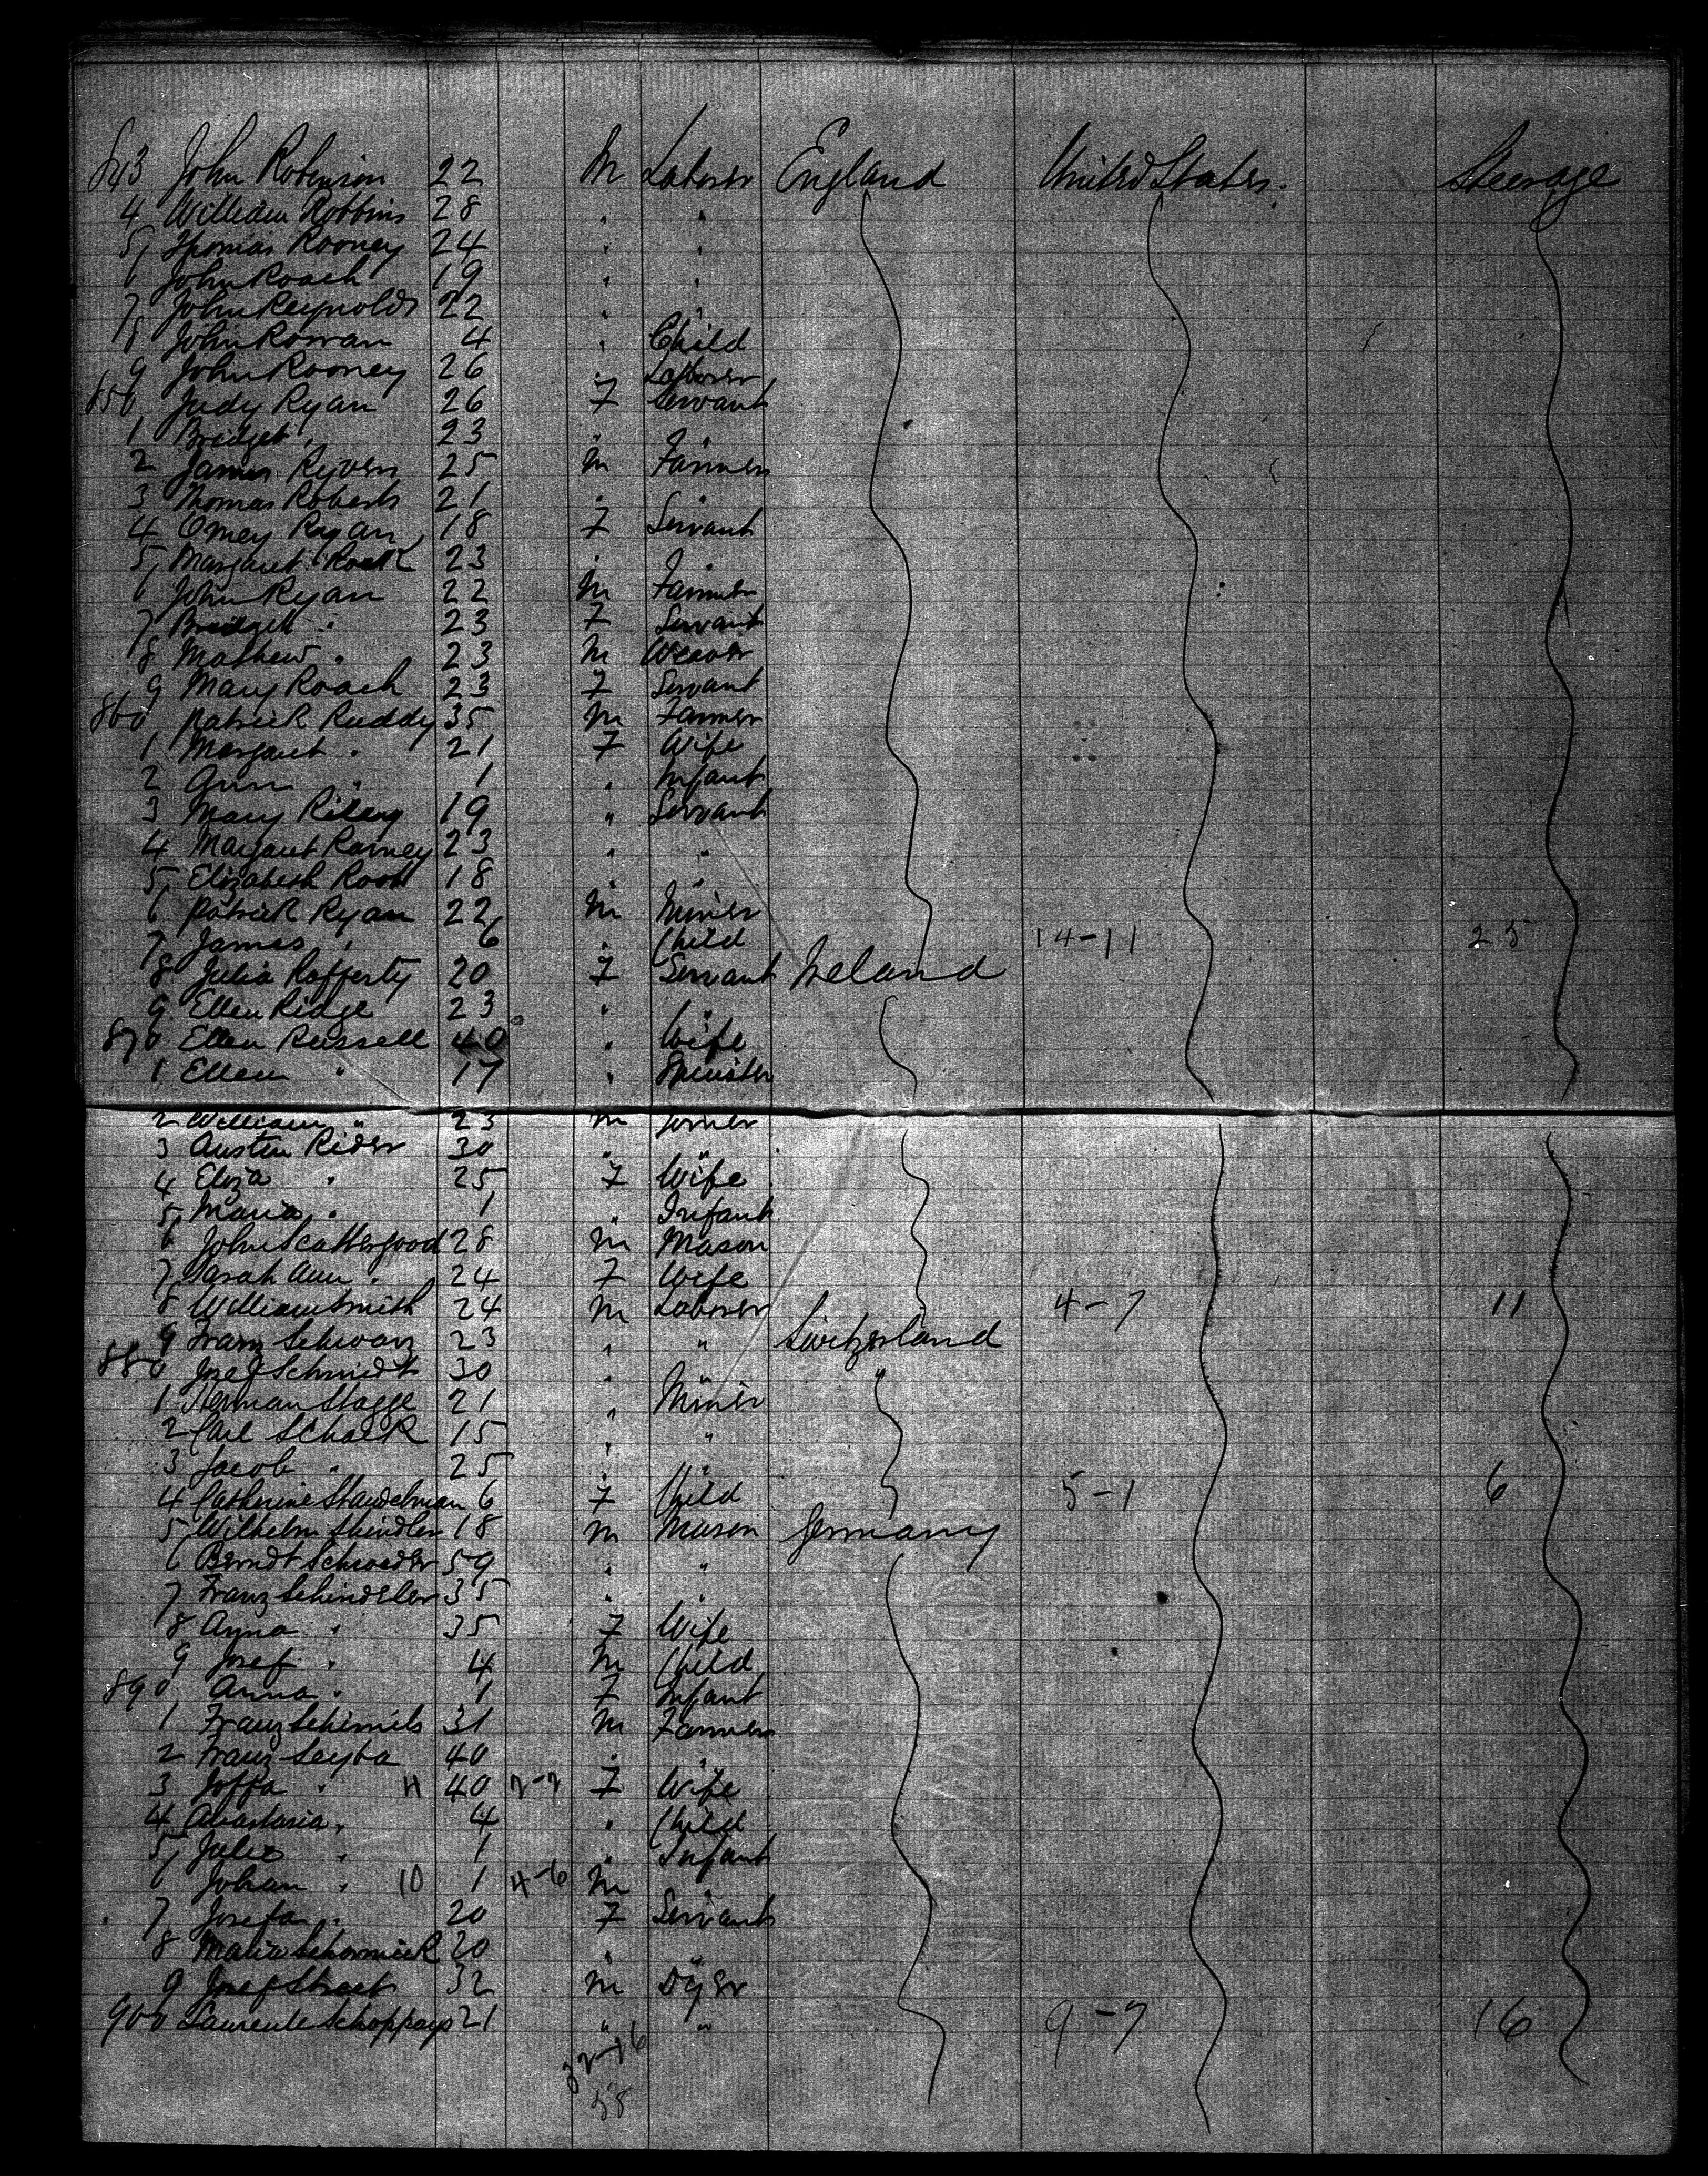 843 John Robinson 22 M Laborer England United States. Steerage
4 William Robbins 28 " "
5 Thomas Rooney 24 " "
6 John Roach 19 " "
7 John Reynolds 22 " "
8 John Rowan 4 " Child
9 John Rooney 26 " Laborer
850 Judy Ryan 26 F Servant
1 Bridget " 23 " "
2 James 25 M Farmer
3 Thomas Roberts 21 " "
4 Omey Ryan 18 F Servant
5 Margaret 23 " "
6 John Ryan 22 M Farmer
7 Bridget " 23 F Servant
8 Mathew " 23 M Weaver
9 Mary Roach 23 F Servant
860 Patrick Ruddy 35 M Farmer
1 Margaret " 21 F Wife
2 Ann " 1 " Infant
3 Mary Riley 19 " Servant
4 Margaret 23 " "
5 Elizabeth 18 " "
6 Patrick Ryan 22 M Miner
7 James " 6 " Child 14-11 25
8 Julia Rafferty 20 F Servant Ireland
9 Ellen Ridge 23 " "
870 Ellen Russell 40 " Wife
1 Ellen " 17 " Spinster
2 William " 23 M Joiner
3 Austin Rider 30 " "
4 Eliza " 25 F Wife
5 Maria " 1 " Infant
6 John Scattergood 28 M Mason
7 Sarah Ann " 24 F Wife
8 William Smith 24 M Laborer 4-7 11
9 Franz Schwarz 23 " " Switzerland
880 Josef Schmidt 30 " "
1 Herman Stagge 21 " Miner
2 Carl Schack 15 " "
3 Jacob " 25 " "
4 Catherine 6 F Child 5-1 6
5 Wilhelm 18 M Mason Germany
6 Berndt Schroeder 59 " "
7 Franz Schindeler 35 " "
8 Anna " 35 F Wife
9 Josef " 4 M Child
890 Anna " 1 F Infant
1 Franz 31 M Farmer
2 Franz Seyba 40 " "
3 Joffa " 11 40 2-2 F Wife
4 Anastasia " 4 " Child
5 " 1 " Infant
6 Johan " 10 1 4-6 M "
7 Josefa " 20 F Servant
8 Maria 20 " "
9 Josef Street 32 M Dyer
900 21 " " 9-7 16
32-26
58